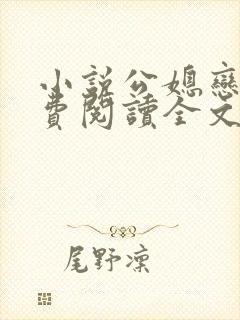 小說公媳戀
費閱讀全文
尾野凜